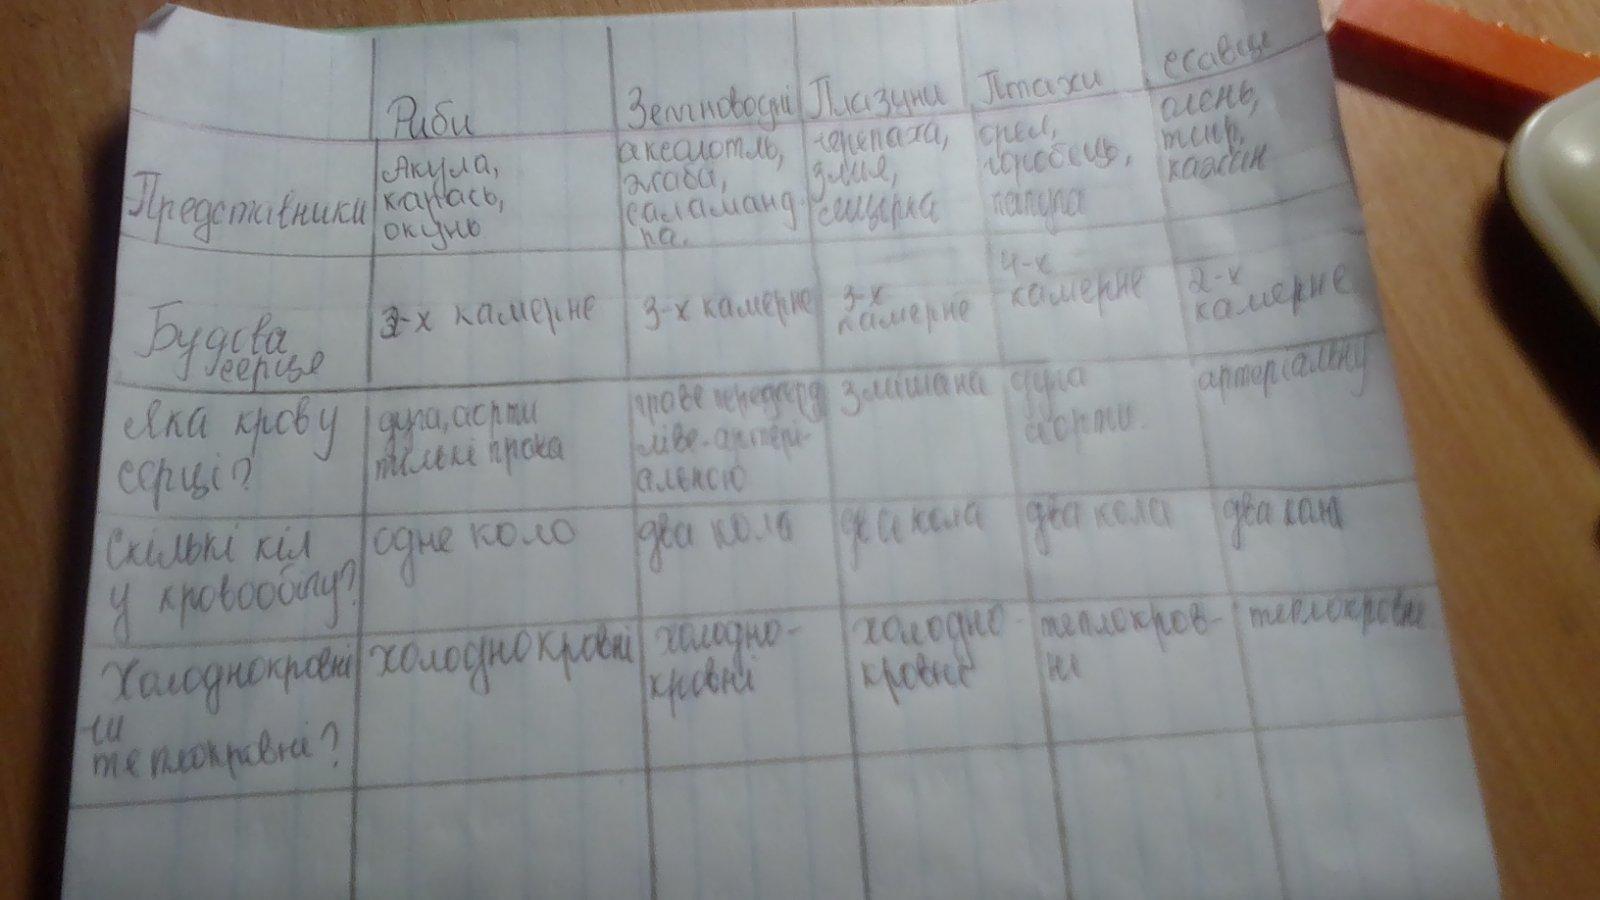 Риби Земноводні Плазуни Птахи ссавці
Представники
Акула,
карась,
окунь
аксолотль,
жаба,
саламанд-
ра.
черепаха,
змія,
ящірка
орел,
горобець,
папуга
олень,
тигр,
кажан
Будова
серце
3-х камерне
3-х камерне
3-х
камерне
4-х
камерне
2-х
камерне
Яка кров у
серці?
дуга, аорти
тільки права
праве передсерд
ліве-артері-
альною
змішана
дуга
аорти.
артеріальну
Скількі кіл
у кровообігу?
одне коло
два кола
два кола
два кола
два кола
Холоднокровні
чи
теплокравні?
холоднокровні
холодно-
кровні
холодно-
кровні
теплокров-
ні
теплокровні